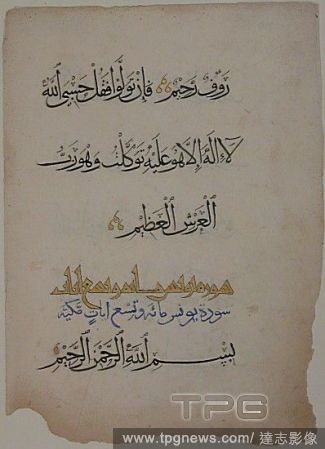 رَؤُفٌ رَحِيْمٌ فَاِنْ تَوَلَّوْا فَقُلْ حَسْبِيَ اللّٰهُ
لَا اِلٰهَ اِلَّا هُوَ عَلَيْهِ تَوَكَّلْتُ وَهُوَ رَبُّ
الْعَرْشِ الْعَظِيْمِ
سورة يونس مائة وتسع ايات مكية
بِسْمِ اللّٰهِ الرَّحْمٰنِ الرَّحِيْمِ
TPG
www.tpgnews.com / 達志影像